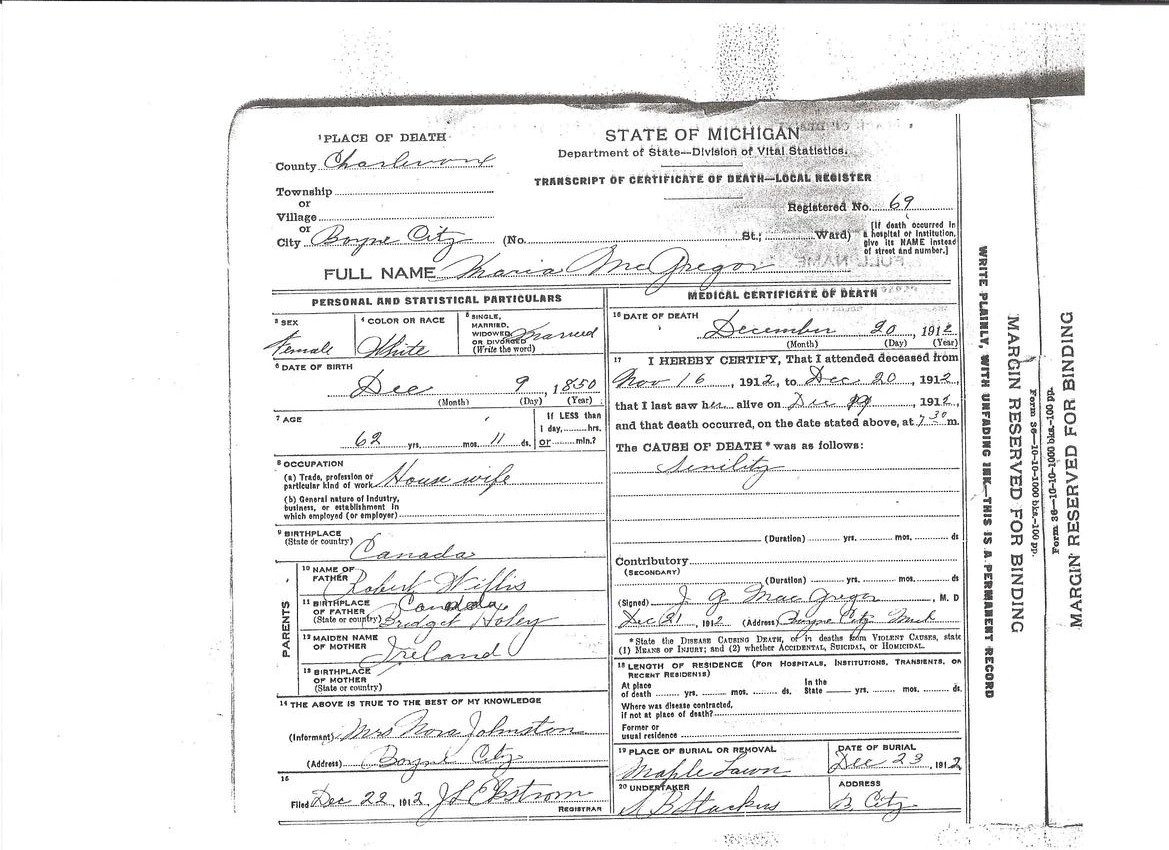 ¹PLACE OF DEATH
County Charlevoix
Township
or
Village
or
City Boyne City (No. St.; Ward)
STATE OF MICHIGAN
Department of State—Division of Vital Statistics.
TRANSCRIPT OF CERTIFICATE OF DEATH—LOCAL REGISTER
Registered No. 69
[If death occurred in
a hospital or institution,
give its NAME instead
of street and number.]
FULL NAME Maria McGregor
PERSONAL AND STATISTICAL PARTICULARS
³ SEX
Female
⁴ COLOR OR RACE
White
⁵ SINGLE,
MARRIED,
WIDOWED,
OR DIVORCED
(Write the word)
Married
⁶ DATE OF BIRTH
Dec 9, 1850
(Month) (Day) (Year)
⁷ AGE
62 yrs. mos. 11 ds.
If LESS than
1 day, hrs.
or min.?
⁸ OCCUPATION
(a) Trade, profession or
particular kind of work House wife
(b) General nature of Industry,
business, or establishment in
which employed (or employer)
⁹ BIRTHPLACE
(State or country)
Canada
PARENTS
¹⁰ NAME OF
FATHER
Robert Willis
¹¹ BIRTHPLACE
OF FATHER
(State or country)
Canada
Bridget
¹² MAIDEN NAME
OF MOTHER
Ireland
¹³ BIRTHPLACE
OF MOTHER
(State or country)
¹⁴ THE ABOVE IS TRUE TO THE BEST OF MY KNOWLEDGE
(Informant) Mrs Nora Johnston
(Address) Boyne City
¹⁵
Filed Dec 22, 1912, J L Ekstrom
REGISTRAR
MEDICAL CERTIFICATE OF DEATH
¹⁶ DATE OF DEATH
December 20, 1912
(Month) (Day) (Year)
¹⁷ I HEREBY CERTIFY, That I attended deceased from
Nov 16, 1912, to Dec 20, 1912,
that I last saw her alive on Dec 19, 1912,
and that death occurred, on the date stated above, at 7 30 m.
The CAUSE OF DEATH* was as follows:
Senility
(Duration) yrs. mos. ds
Contributory
(SECONDARY)
(Duration) yrs. mos. ds
(Signed) J. G MacGregor, M. D
Dec 21, 1912 (Address) Boyne City Mich
*State the DISEASE CAUSING DEATH, or in deaths from VIOLENT CAUSES, state
(1) MEANS OF INJURY; and (2) whether ACCIDENTAL, SUICIDAL, or HOMICIDAL.
¹⁸ LENGTH OF RESIDENCE (FOR HOSPITALS, INSTITUTIONS, TRANSIENTS, OR
RECENT RESIDENTS)
At place
of death yrs. mos. ds.
In the
State yrs. mos. ds.
Where was disease contracted,
if not at place of death?
Former or
usual residence
¹⁹ PLACE OF BURIAL OR REMOVAL
Maple Lawn
DATE OF BURIAL
Dec 23, 1912
²⁰ UNDERTAKER
S B Stackus
ADDRESS
B. City
WRITE PLAINLY, WITH UNFADING INK—THIS IS A PERMANENT RECORD
MARGIN RESERVED FOR BINDING
Form 36—10-10-1000 bks.-100 pp.
Form 36—10-10-1000 bks.-100 pp.
MARGIN RESERVED FOR BINDING